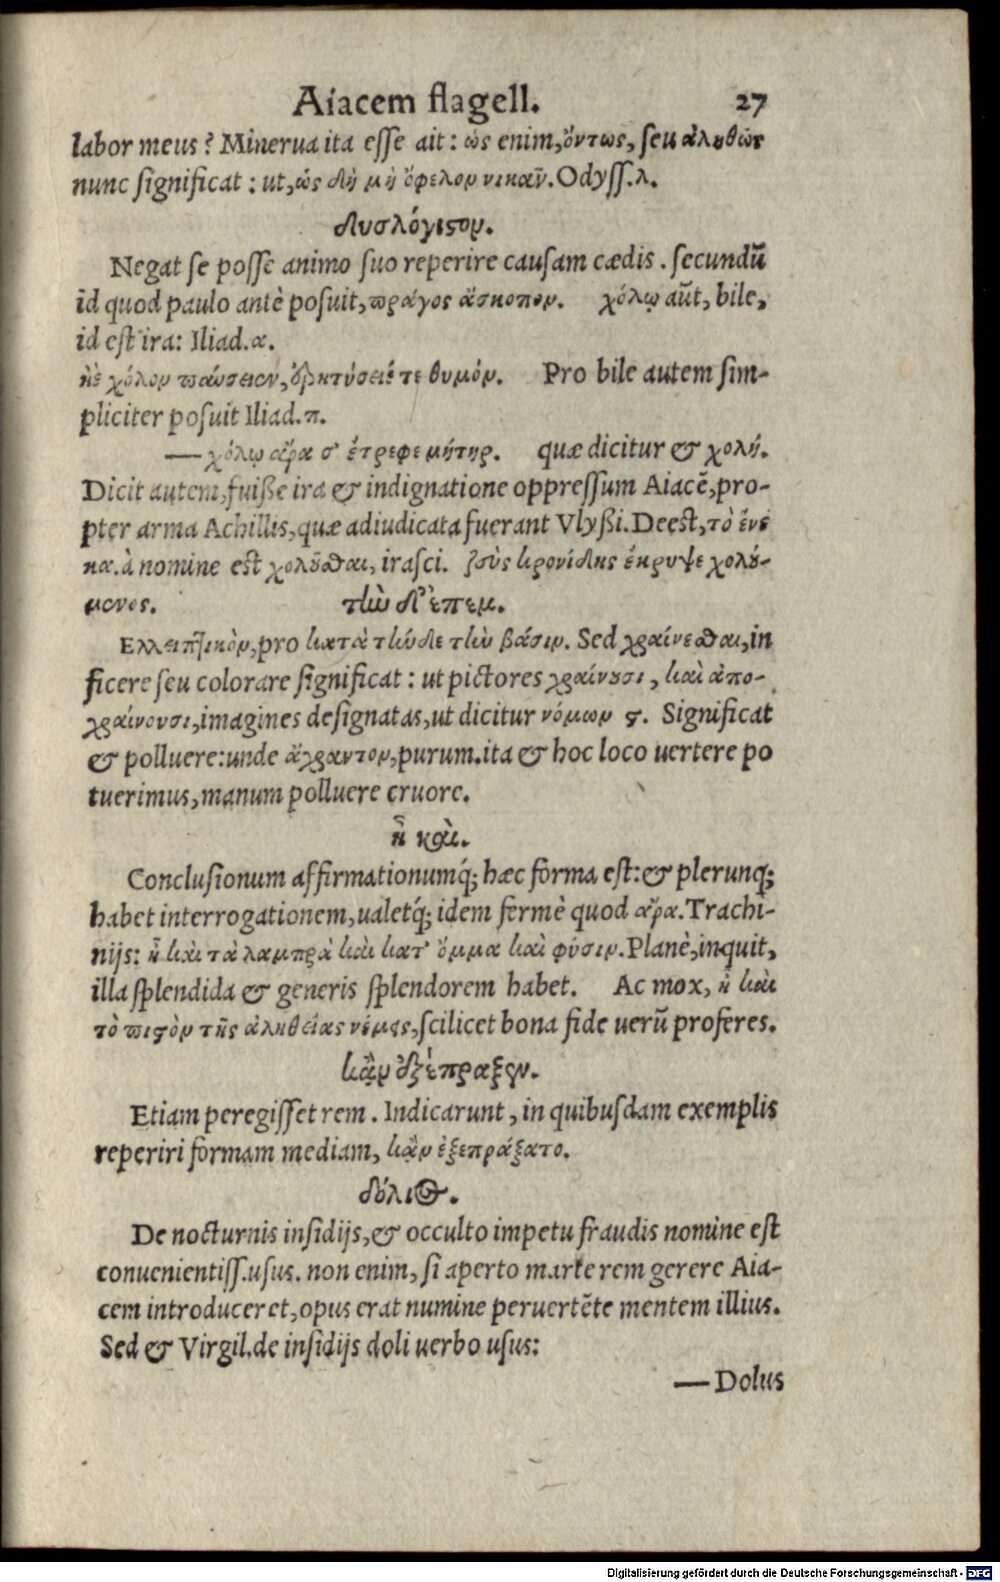 Aiacem flagell. 27
labor meus? Minerua ita esse ait: ὡς enim, ὄντως, seu ἀληθῶς
nunc significat: ut, ὡς δὴ μὴ ὄφελον νικᾶν. Odyss. λ.
δυσλόγιστον.
Negat se posse animo suo reperire causam cædis. secundū
id quod paulo antè posuit, πράγος ἄσκοπον. χόλῳ aūt, bile,
id est ira: Iliad. α.
ἠὲ χόλον παύσειεν, ἐρητύσειέ τε θυμόν. Pro bile autem sim-
pliciter posuit Iliad. π.
— χόλῳ ἄρα σ' ἔτρεφε μήτηρ. quæ dicitur & χολή.
Dicit autem, fuiße ira & indignatione oppressum Aiacē, pro-
pter arma Achillis, quæ adiudicata fuerant Vlyßi. Deest, τὸ ἕνε
κα. à nomine est χολοῦσθαι, irasci. ζεὺς κρονίδης ἔκρυψε χολού-
μενος. τὼ δ' ἐπεμ.
Ελλειπτικὸν, pro κατὰ τὼ δε τὼ βάσιν. Sed χραίνεσθαι, in
ficere seu colorare significat: ut pictores χραίνουσι, καὶ ἀπο-
χραίνουσι, imagines designatas, ut dicitur νόμων ϛ. Significat
& polluere: unde ἄχραντον, purum. ita & hoc loco uertere po
tuerimus, manum polluere cruore.
ἦ καὶ.
Conclusionum affirmationumq́; hæc forma est: & plerunq;
habet interrogationem, ualetq́; idem fermè quod ἄρα. Trachi-
nijs: ἦ καὶ τὰ λαμπρὰ καὶ κατ' ὄμμα καὶ φύσιν. Planè, inquit,
illa splendida & generis splendorem habet. Ac mox, ἦ καὶ
τὸ πιστὸν τῆς ἀληθείας νέμεις, scilicet bona fide uerū proferes.
κἂν ἐξέπραξεν.
Etiam peregisset rem. Indicarunt, in quibusdam exemplis
reperiri formam mediam, κἂν ἐξεπράξατο.
δόλιος.
De nocturnis insidijs, & occulto impetu fraudis nomine est
conuenientiss. usus. non enim, si aperto marte rem gerere Aia-
cem introduceret, opus erat numine peruertēte mentem illius.
Sed & Virgil. de insidijs doli uerbo usus:
— Dolus
Digitalisierung gefördert durch die Deutsche Forschungsgemeinschaft - DFG